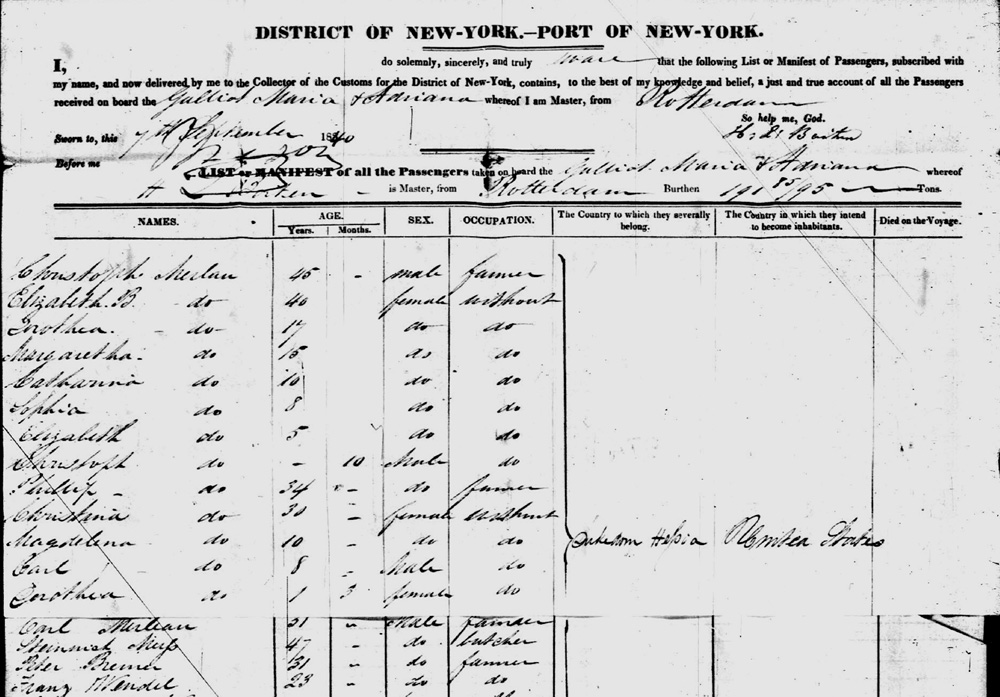 DISTRICT OF NEW-YORK.—PORT OF NEW-YORK.
I, do solemnly, sincerely, and truly that the following List or Manifest of Passengers, subscribed with
my name, and now delivered by me to the Collector of the Customs for the District of New-York, contains, to the best of my knowledge and belief, a just and true account of all the Passengers
received on board the Galliot Maria & Adriana whereof I am Master, from Rotterdam
So help me, God.
Sworn to, this 7th September 1840
Before me
LIST or MANIFEST of all the Passengers taken on board the Galliot Maria & Adriana whereof
H is Master, from Rotterdam Burthen 191 85/95 Tons.
NAMES. AGE. SEX. OCCUPATION. The Country to which they severally belong. The Country in which they intend to become inhabitants. Died on the Voyage.
Years. Months.
Christoph Merlau 45 - male farmer
Elizabeth B. do 40 female without
Dorothea. - do 17 do do
Margaretha. do 15 do do
Catharina do 10 do do
Sophia do 8 do do
Elizabeth do 5 do do
Christoph do - 10 Male do
Phillip - do 34 - do farmer
Christina do 30 - female without
Magdelena do 10 - do do Dukedom Hessia States
Carl do 8 - Male do
Dorothea do 1 3 female do
Carl Merleau 31 - Male farmer
47 - do butcher
Peter Bremer 31 - do farmer
Franz Wendel 23 - do do